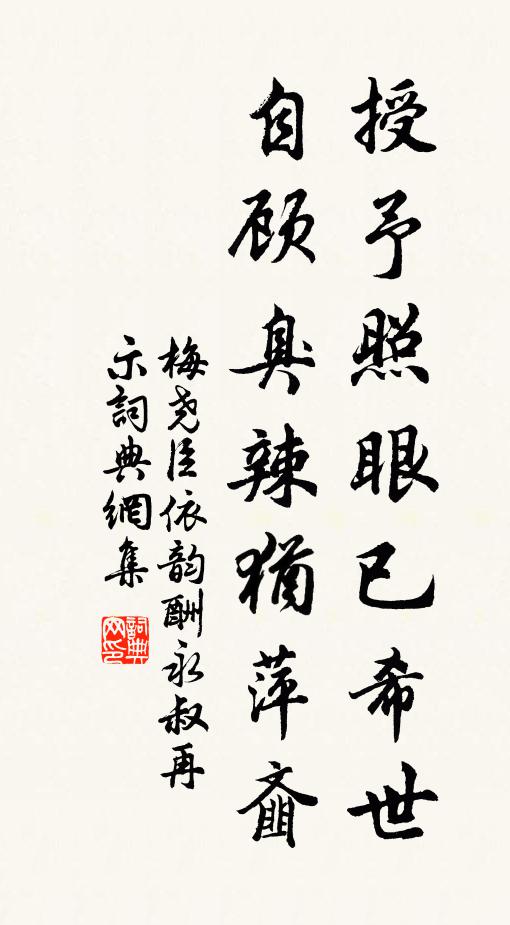 授予照眼已希世
自顾臭辣犹萍齑
梅尧臣依韵酬永叔再
示词典網集
詞典网印